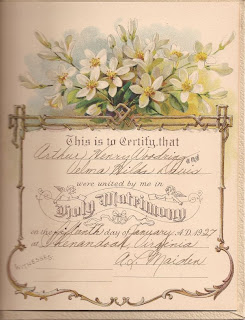 This is to Certify, that
Arthur Henry Woodring and
Velma Hilda Davis
were united by me in
Holy Matrimony
on the day of January A.D. 1927
at Shenandoah, Virginia
Witnesses
Maiden